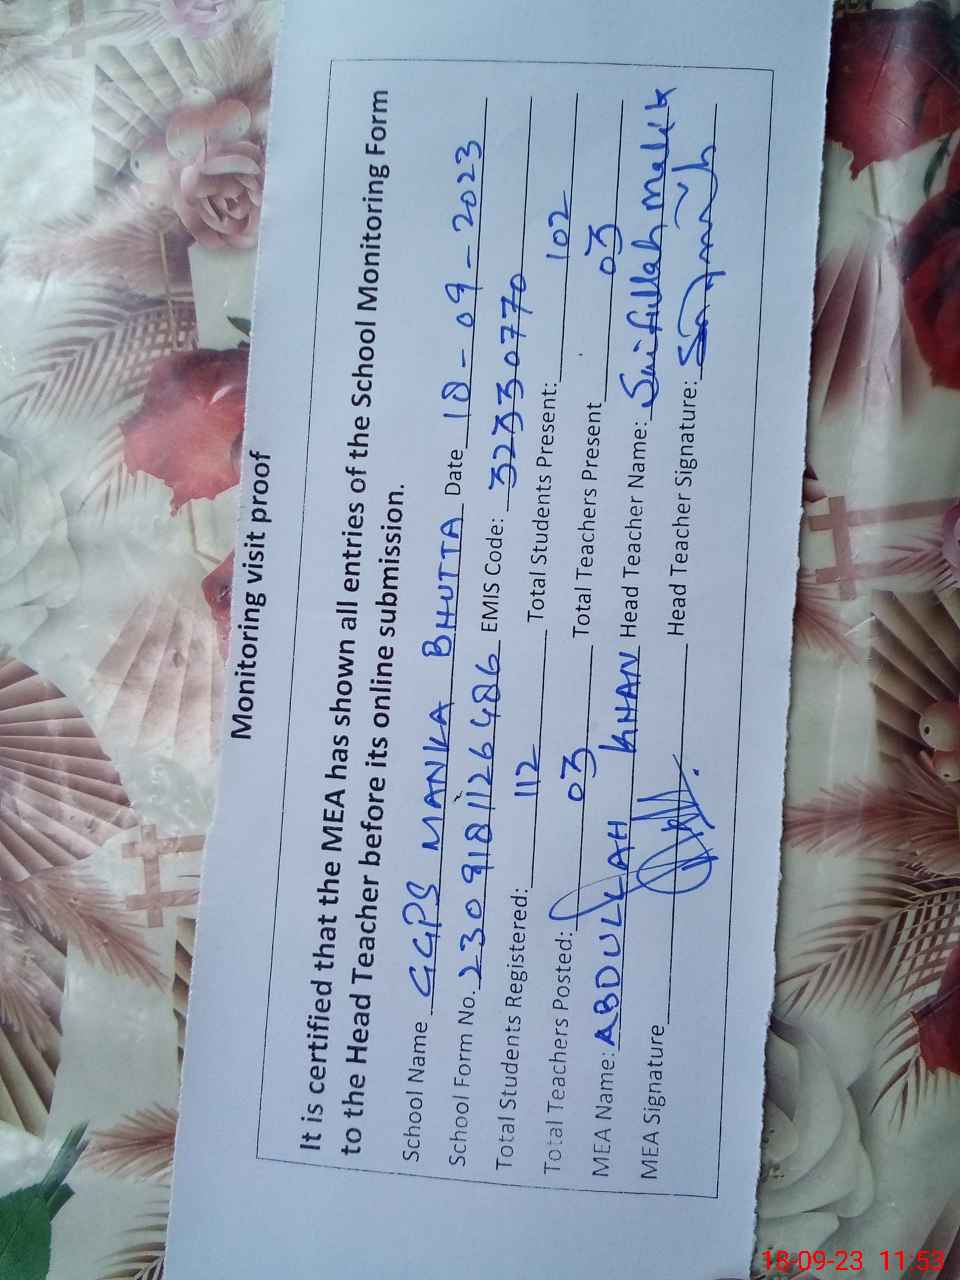 Monitoring visit proof
It is certified that the MEA has shown all entries of the School Monitoring Form
to the Head Teacher before its online submission.
School Name GGPS MANKA BHUTTA Date 18-09-2023
School Form No. 2309181126486 EMIS Code: 32330770
Total Students Registered: 112 Total Students Present: 102
Total Teachers Posted: 03 Total Teachers Present 03
MEA Name: ABDULLAH KHAN Head Teacher Name: Saifullah malik
MEA Signature Head Teacher Signature:
18-09-23 11:53